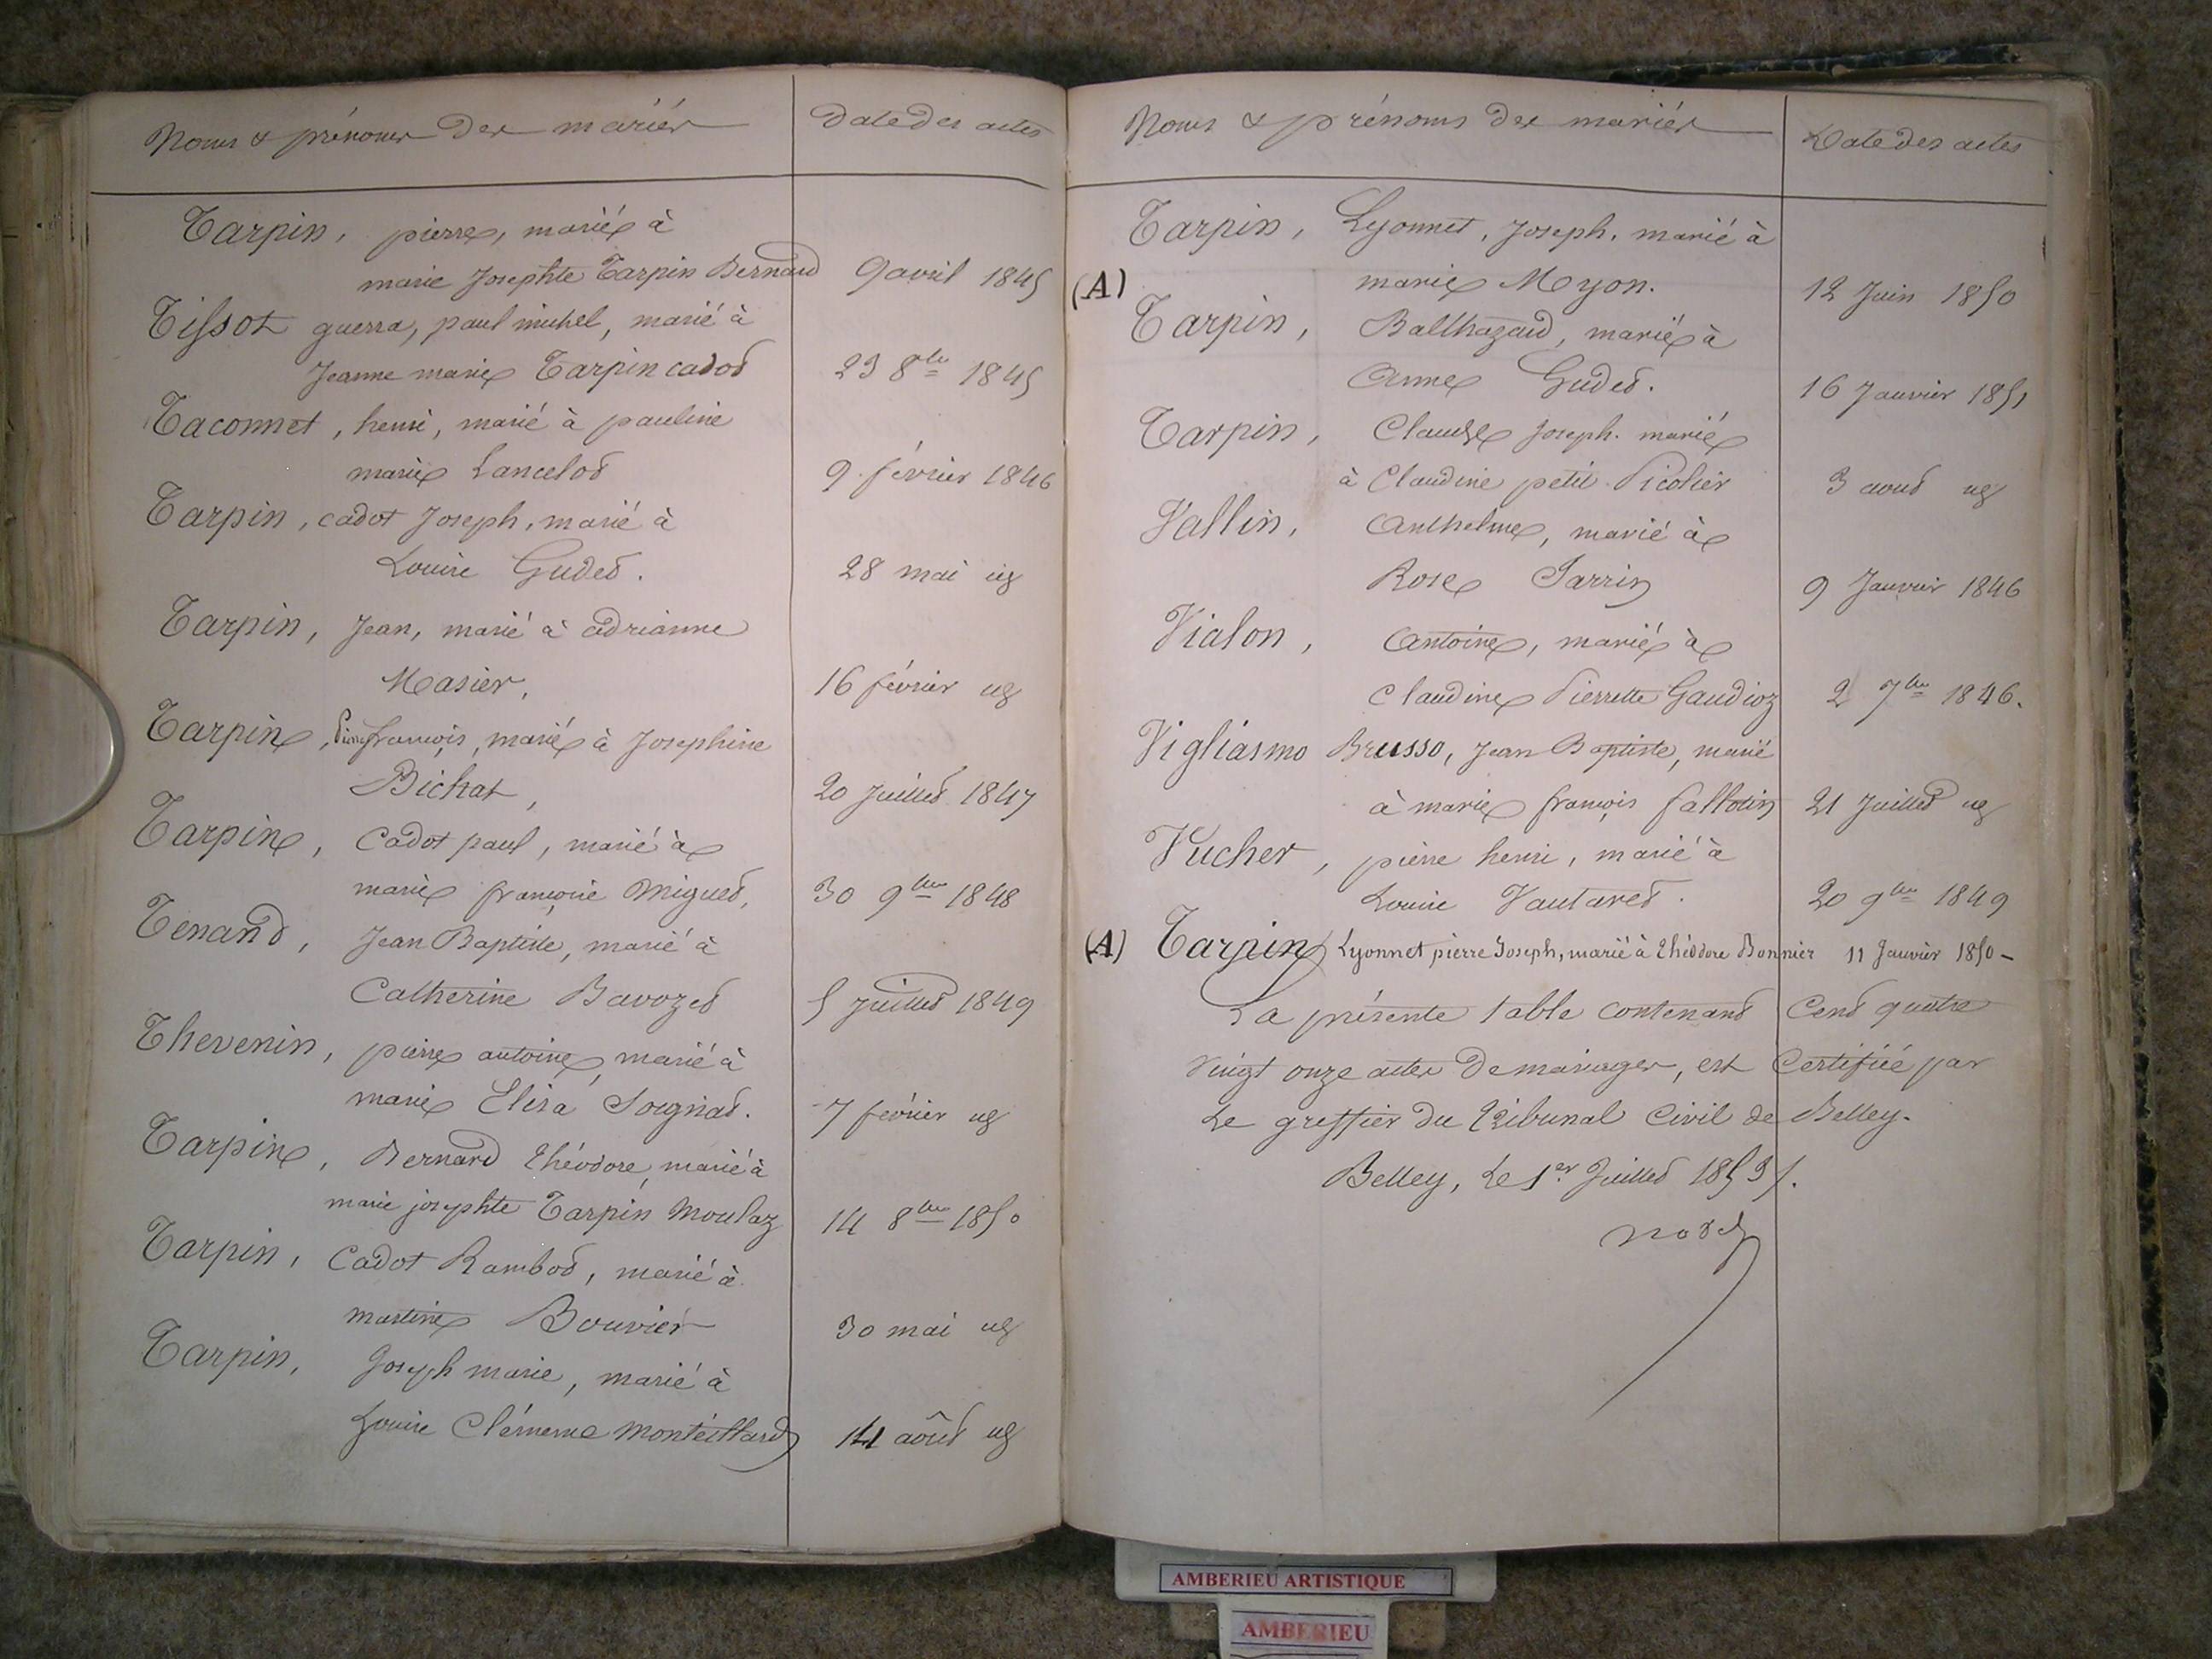 Noms & prénoms des mariés
Date des actes
Tarpin, pierre, marié à
marie Josephte Tarpin Bernard 9 avril 1845
Tissot guerra, paul michel, marié à
Jeanne marie Tarpin cadot 23 8bre 1845
Taconnet, henri, marié à pauline
marie Lancelot 9 février 1846
Tarpin, cadot Joseph, marié à
Louise Gudet. 28 mai id
Tarpin, Jean, marié à adrianne
Masier, 16 février id
Tarpin, Pierre françois, marié à Josephine
Bichat, 20 Juillet 1847
Tarpin, Cadot paul, marié à
marie françoise Miguet, 30 9bre 1848
Tenand, Jean Baptiste, marié à
Catherine Bavozet 5 Juillet 1849
Thevenin, pierre antoine, marié à
marie Elisa Soignat. 7 février id
Tarpin, Bernard théodore, marié à
marie josephte Tarpin Moulaz 14 8bre 1850
Tarpin, Cadot Rambod, marié à
martine Bouvier 30 mai id
Tarpin, Joseph marie, marié à
Louise Clémence Monteillard 14 aôut id
Noms & prénoms des mariés
Date des actes
Tarpin, Lyonnet, Joseph, marié à
marie Myon. 12 Juin 1850
(A)
Tarpin, Balthazard, marié à
Anne Gudet. 16 Janvier 1851
Tarpin, Claude Joseph. marié
à Claudine petit Picolier 3 aout id
Vallin, Anthelme, marié à
Rose Sarrin 9 Janvier 1846
Vialon, Antoine, marié à
Claudine Pierrette Gaudioz 2 7bre 1846.
Vigliasmo Brusso, Jean Baptiste, marié
à marie françois fallotin 21 Juillet id
Vucher, pierre henri, marié à
Louise Vautaret. 20 9bre 1849
(A) Tarpin Lyonnet pierre Joseph, marié à théodore Bonnier 11 Janvier 1850 -
La présente table contenant Cent quatre
vingt onze actes de mariages, est Certifiée par
Le greffier du tribunal Civil de Belley.
Belley, Le 1er Juillet 1853.
AMBERIEU ARTISTIQUE
AMBERIEU